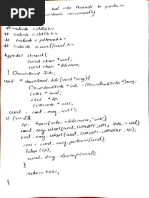 that uses threads to perform
concurrently
# include <stdio.h>
# include <stdlib.h>
# include <pthread.h>
# include <curl/curl.h>
typedef struct {
const char *url;
const char *
} DownloadInfo;
void * download_file (void *arg){
DownloadInfo * info = (DownloadInfo *)arg;
CURL * curl;
FILE * fp;
curl = curl_easy_init();
if (curl) {
fp = fopen(info->filename, "wb");
curl_easy_setopt(curl, CURLOPT_
curl_easy_setopt(curl, CURLOPT_WRITEDATA, fp);
res = curl_easy_perform(curl);
fclose (fp);
curl_easy_cleanup(curl);
}
return NULL;
}